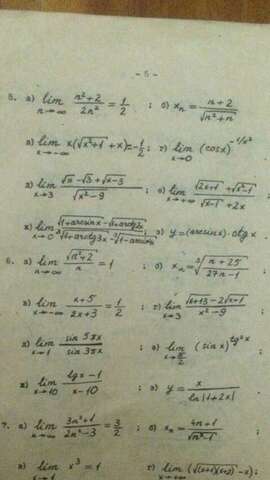 - 5 -
5. а) lim n→∞ (n²+2)/(2n²) = 1/2 ; б) xₙ = (n+2)/√(n²+n)
в) lim x→-∞ x(√(x²+1)+x) = -1/2 ; г) lim x→0 (cosx)^(-1/x²)
д) lim x→3 (√x-√3+√(x-3))/√(x²-9) ; е) lim x→+∞ (√(2x+1)+√(x²-1))/(√(x-1)+2x)
ж) lim x→0 ; з) y=(arcsinx)·ctgx
6. а) lim n→∞ √(n²+2)/n = 1 ; б) xₙ = ∛((n+25)/(27n-1))
в) lim x→-∞ (x+5)/(2x+3) = 1/2 ; г) lim x→3 (√(x+13)-2√(x+1))/(x²-9)
д) lim x→1 sin5πx/sin3πx ; е) lim x→π/2 (sinx)^(tg²x)
ж) lim x→10 (lgx-1)/(x-10) ; з) y = x/ln|1+2x|
7. а) lim n→∞ (3n²+1)/(2n²-3) = 3/2 ; б) xₙ = (4n+1)/√(n²-1)
в) lim x→1 x³ = 1 ; г) lim x→∞ (√((x+1)(x+2))-x);